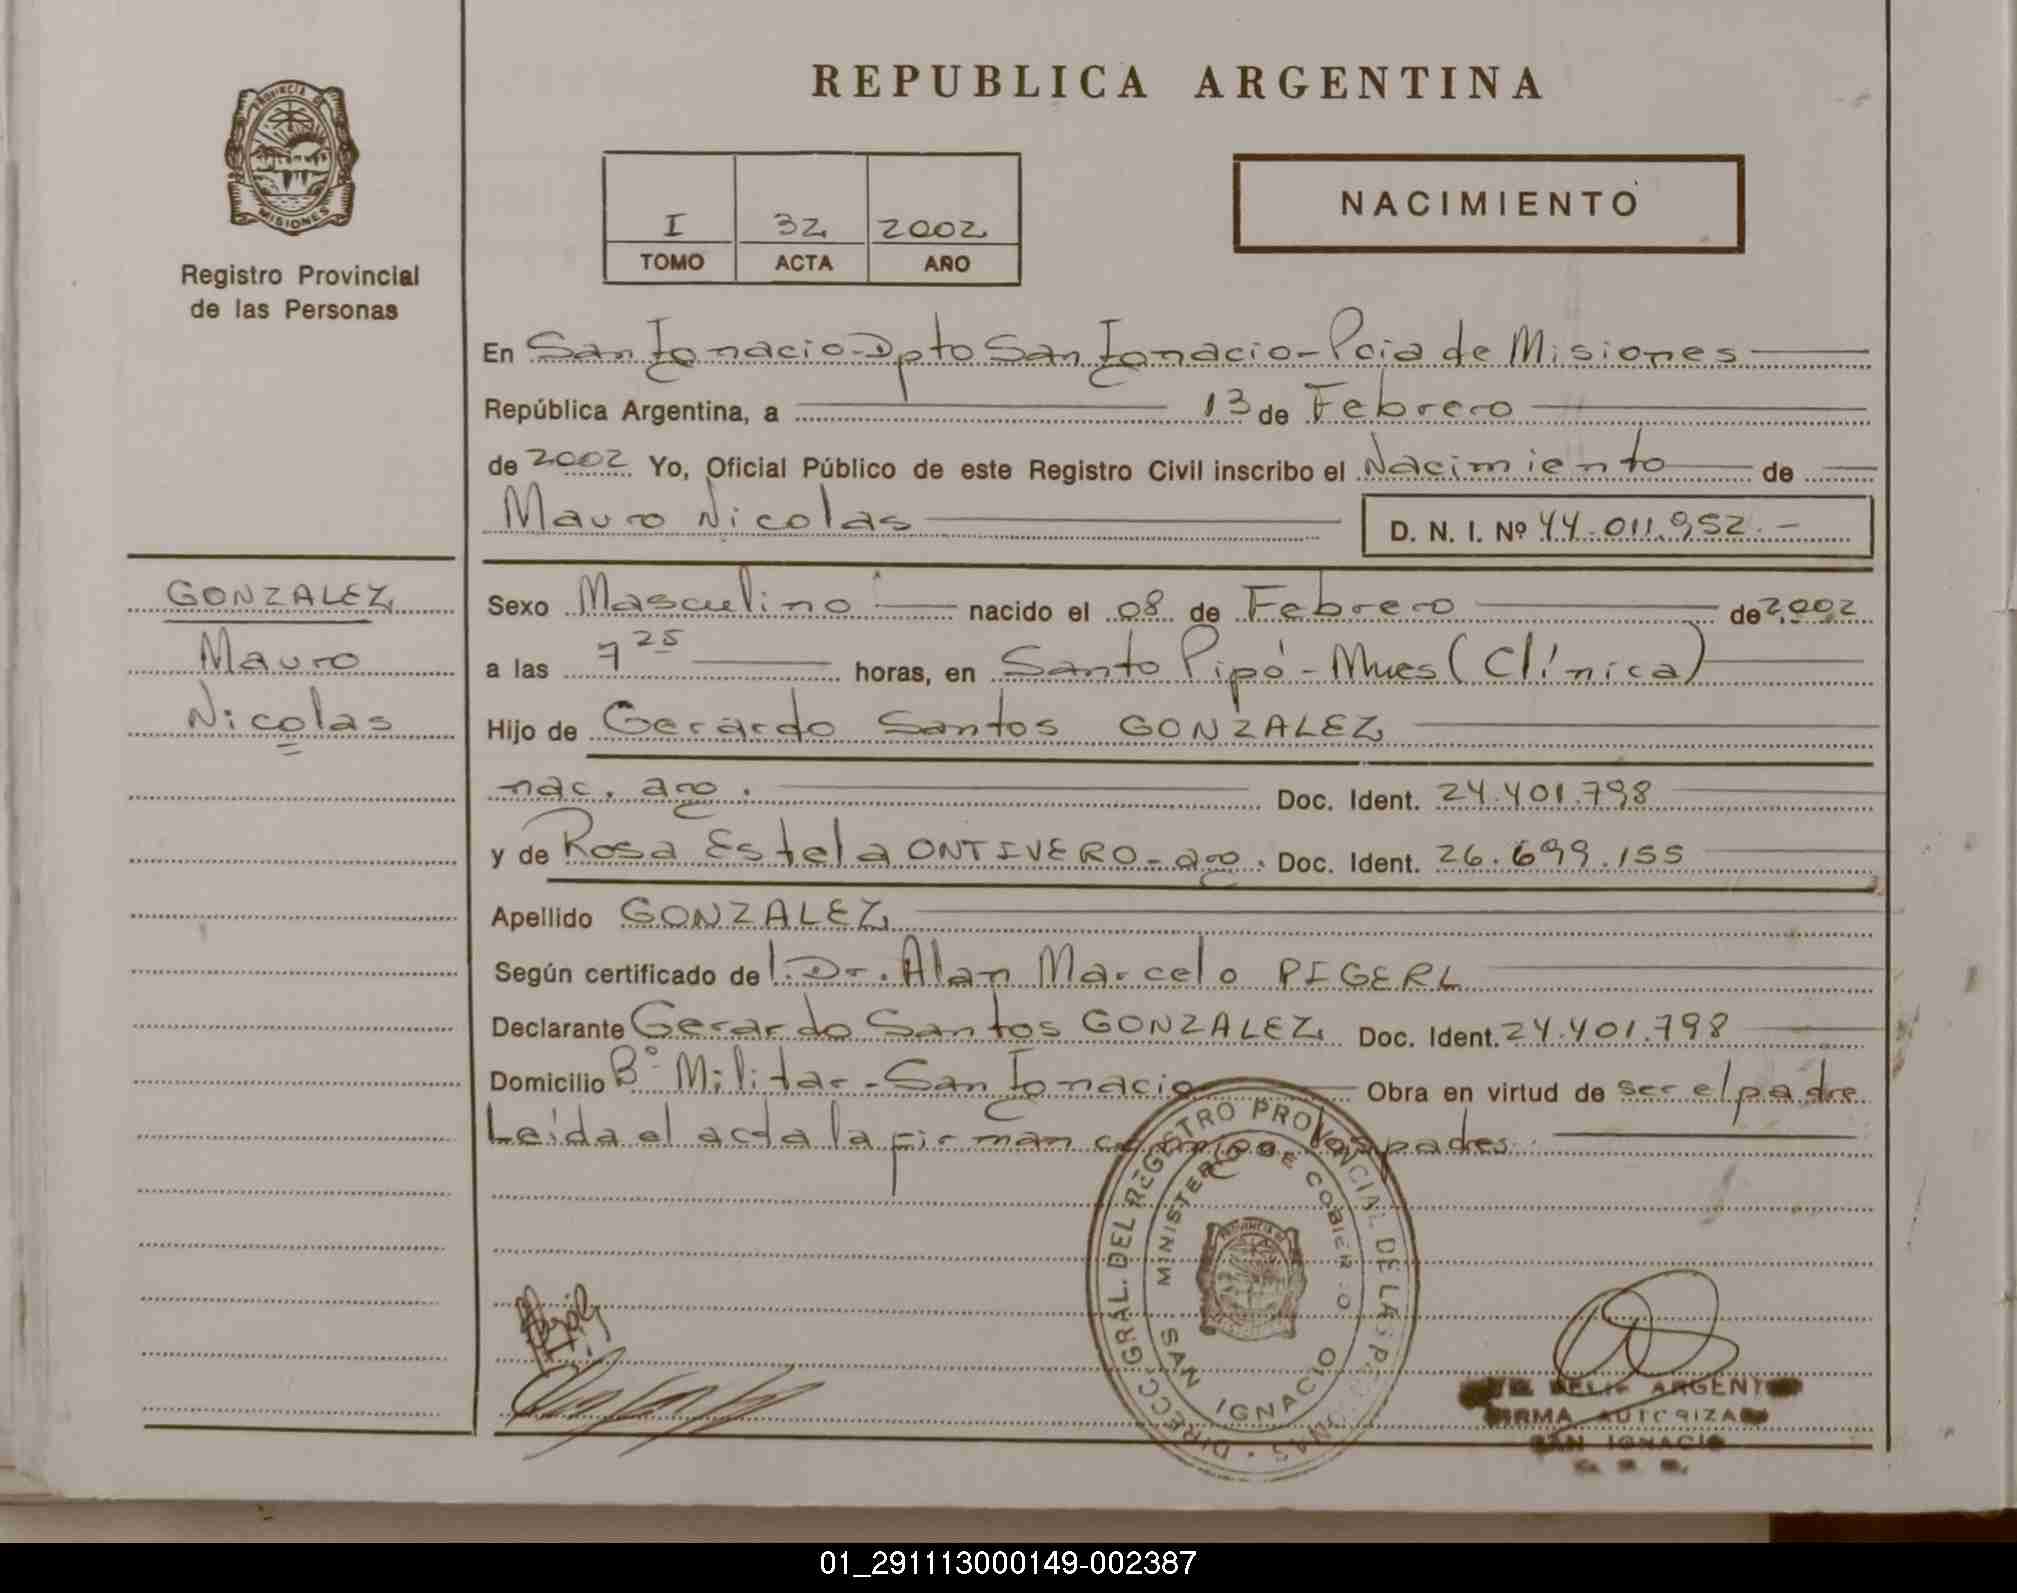 REPUBLICA ARGENTINA
PROVINCIA DE
MISIONES
Registro Provincial
de las Personas
I 32 2002
TOMO ACTA AÑO
NACIMIENTO
En San Ignacio - Dpto San Ignacio - Pcia de Misiones
República Argentina, a 13 de Febrero
de 2002 Yo, Oficial Público de este Registro Civil inscribo el Nacimiento de
Mauro Nicolas D. N. I. Nº 44.011.952.-
GONZALEZ
Mauro
Nicolas
Sexo Masculino nacido el 08 de Febrero de 2002
a las 7 25 horas, en Santo Pipó - Mnes (Clínica)
Hijo de Gerardo Santos GONZALEZ
nac. arg. Doc. Ident. 24.401.798
y de Rosa Estela ONTIVERO - arg. Doc. Ident. 26.699.155
Apellido GONZALEZ
Según certificado del Dr. Alan Marcelo PIGERL
Declarante Gerardo Santos GONZALEZ Doc. Ident. 24.401.798
Domicilio Bº Militar - San Ignacio Obra en virtud de ser el padre
Leída el acta la firman conmigo los padres.
DIRECC GRAL. DEL REGISTRO PROVINCIAL DE LAS P
MINISTERIO DE GOBIERNO
SAN IGNACIO
ARGENTI
FIRMA AUTORIZADA
SAN IGNACIO
01_291113000149-002387